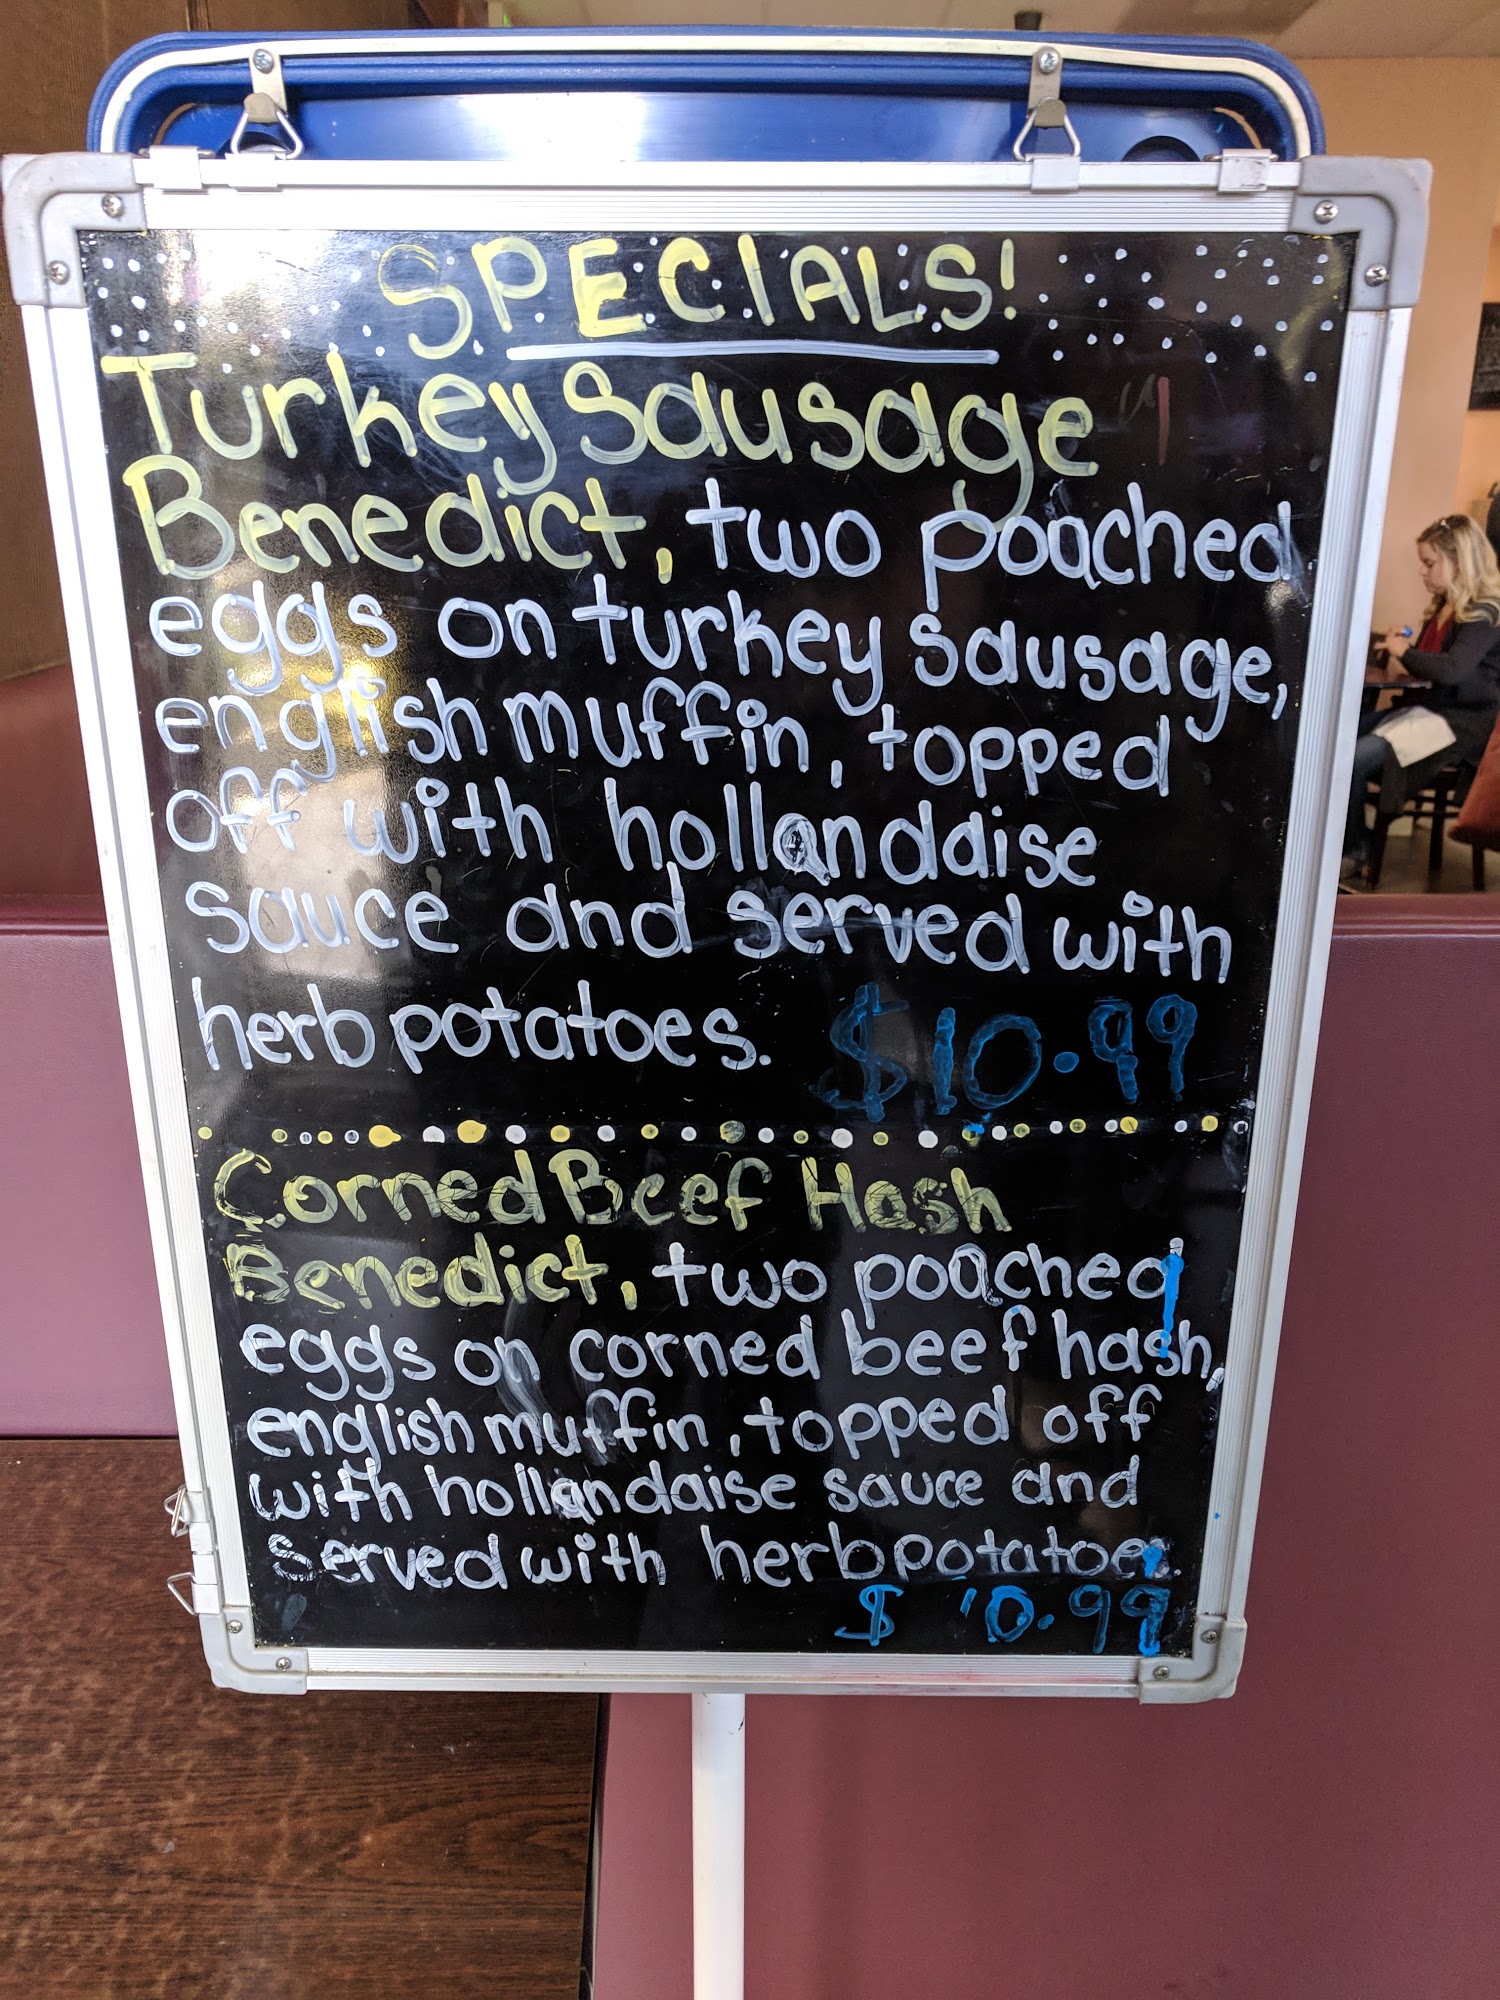 SPECIALS!
Turkey Sausage
Benedict, two poached
eggs on turkey sausage,
english muffin, topped
off with hollandaise
sauce and served with
herb potatoes. $10.99
Corned Beef Hash
Benedict, two poached
eggs on corned beef hash,
english muffin, topped off
with hollandaise sauce and
served with herb potatoes.
$10.99